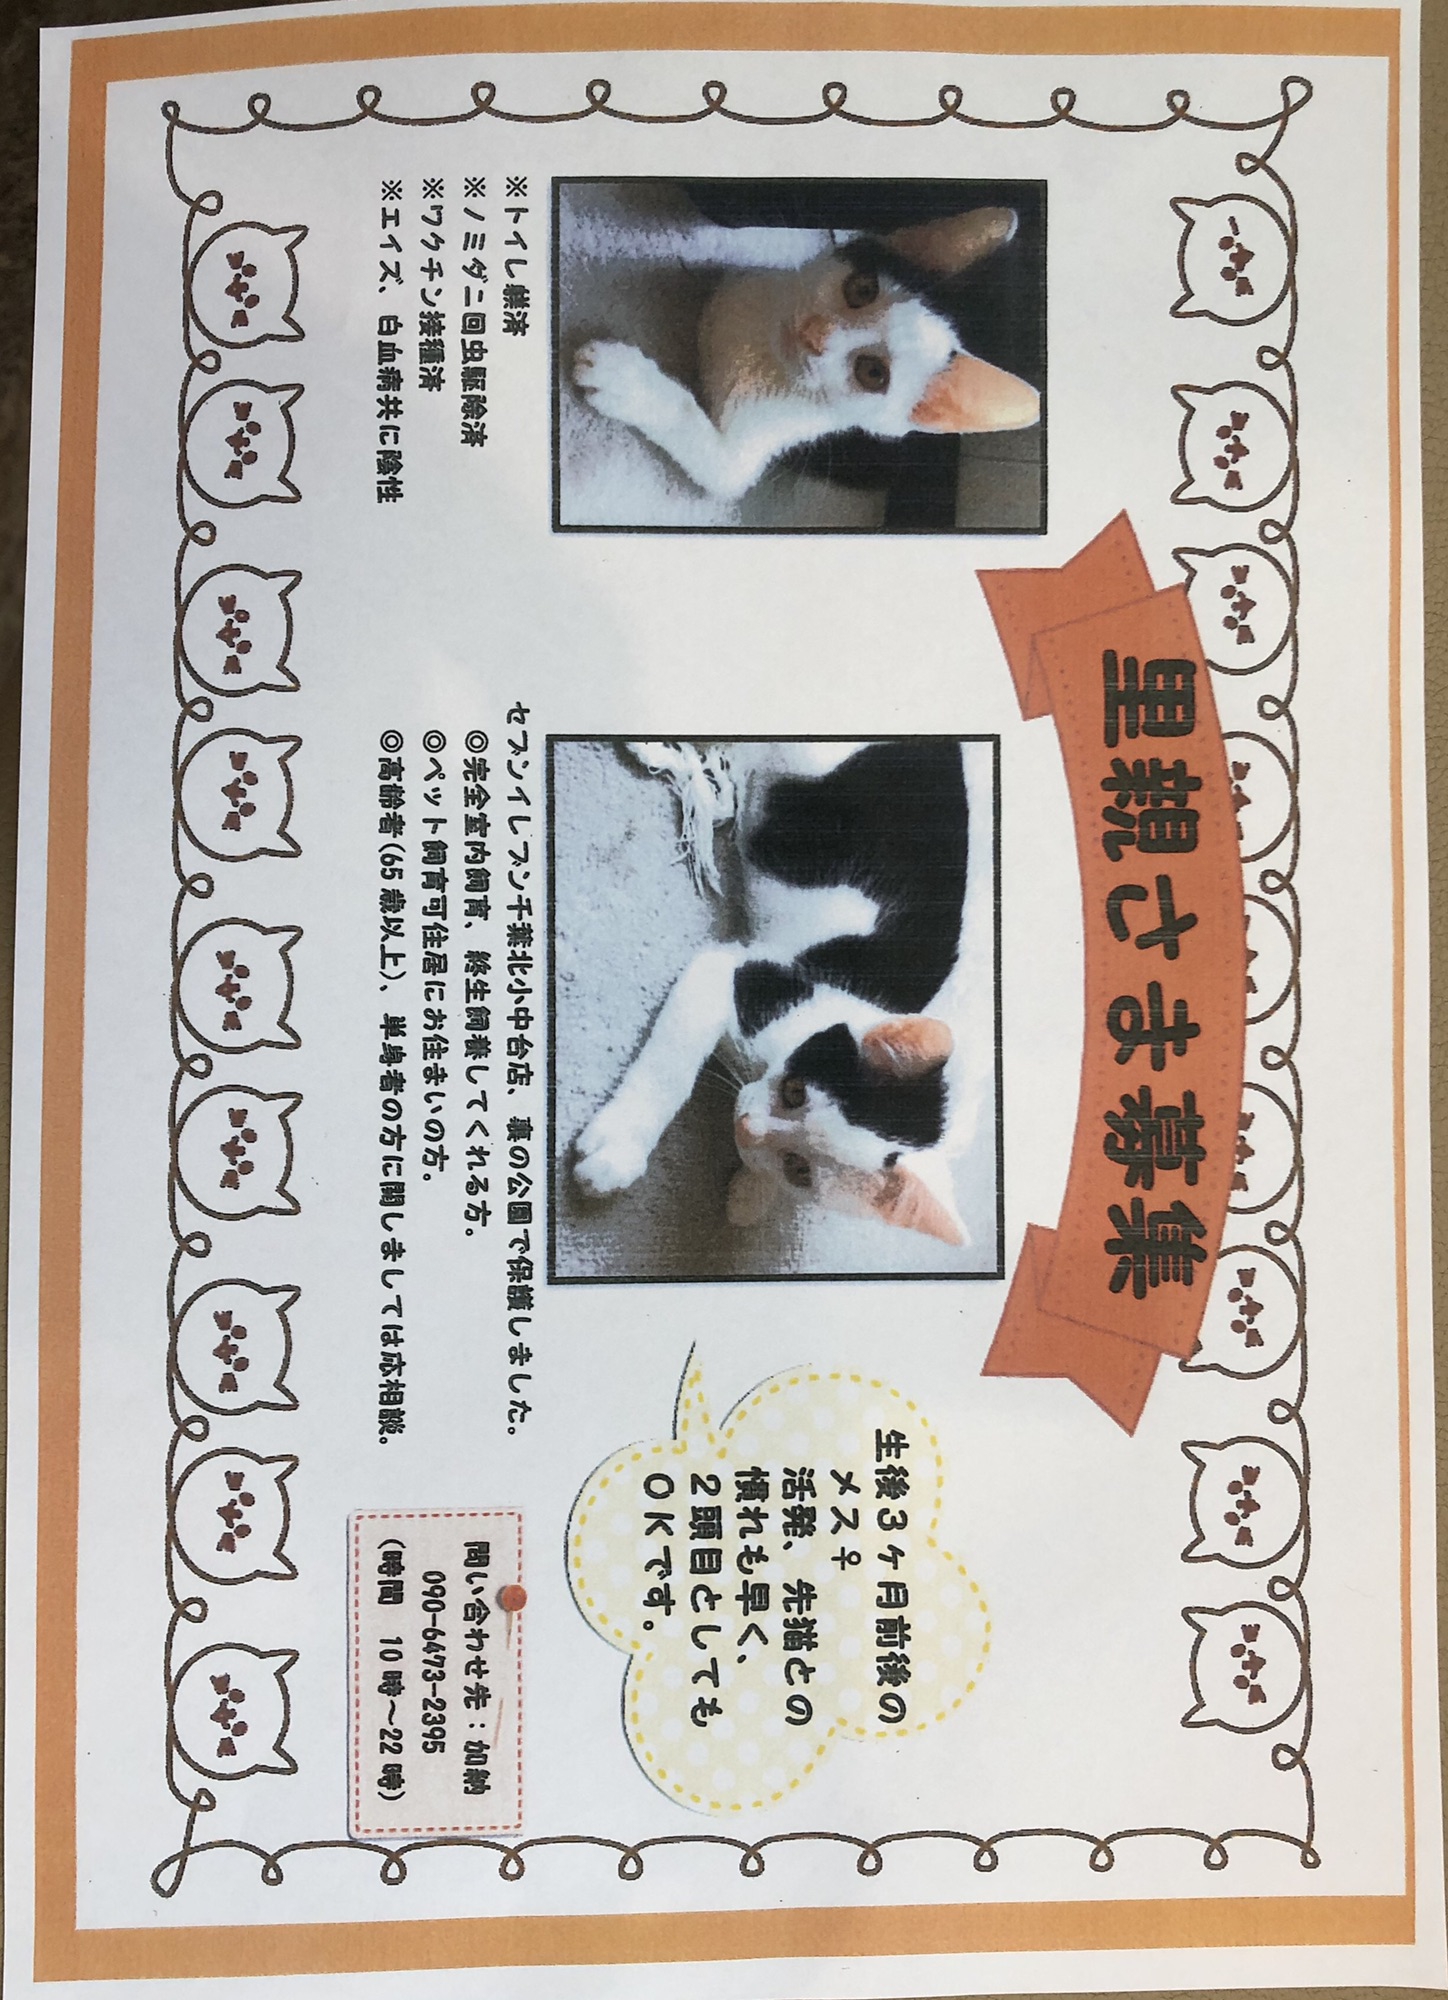 里親さま募集
生後3ヶ月前後の
メス♀
活発、先猫との
慣れも早く、
2頭目としても
OKです。
※トイレ躾済
※ノミダニ回虫駆除済
※ワクチン接種済
※エイズ、白血病共に陰性
セブンイレブン千葉北小中台店、裏の公園で保護しました。
◎完全室内飼育、終生飼養してくれる方。
◎ペット飼育可住居にお住まいの方。
◎高齢者(65歳以上)、単身者の方に関しましては応相談。
問い合わせ先：加納
090-6473-2395
(時間 10時～22時)